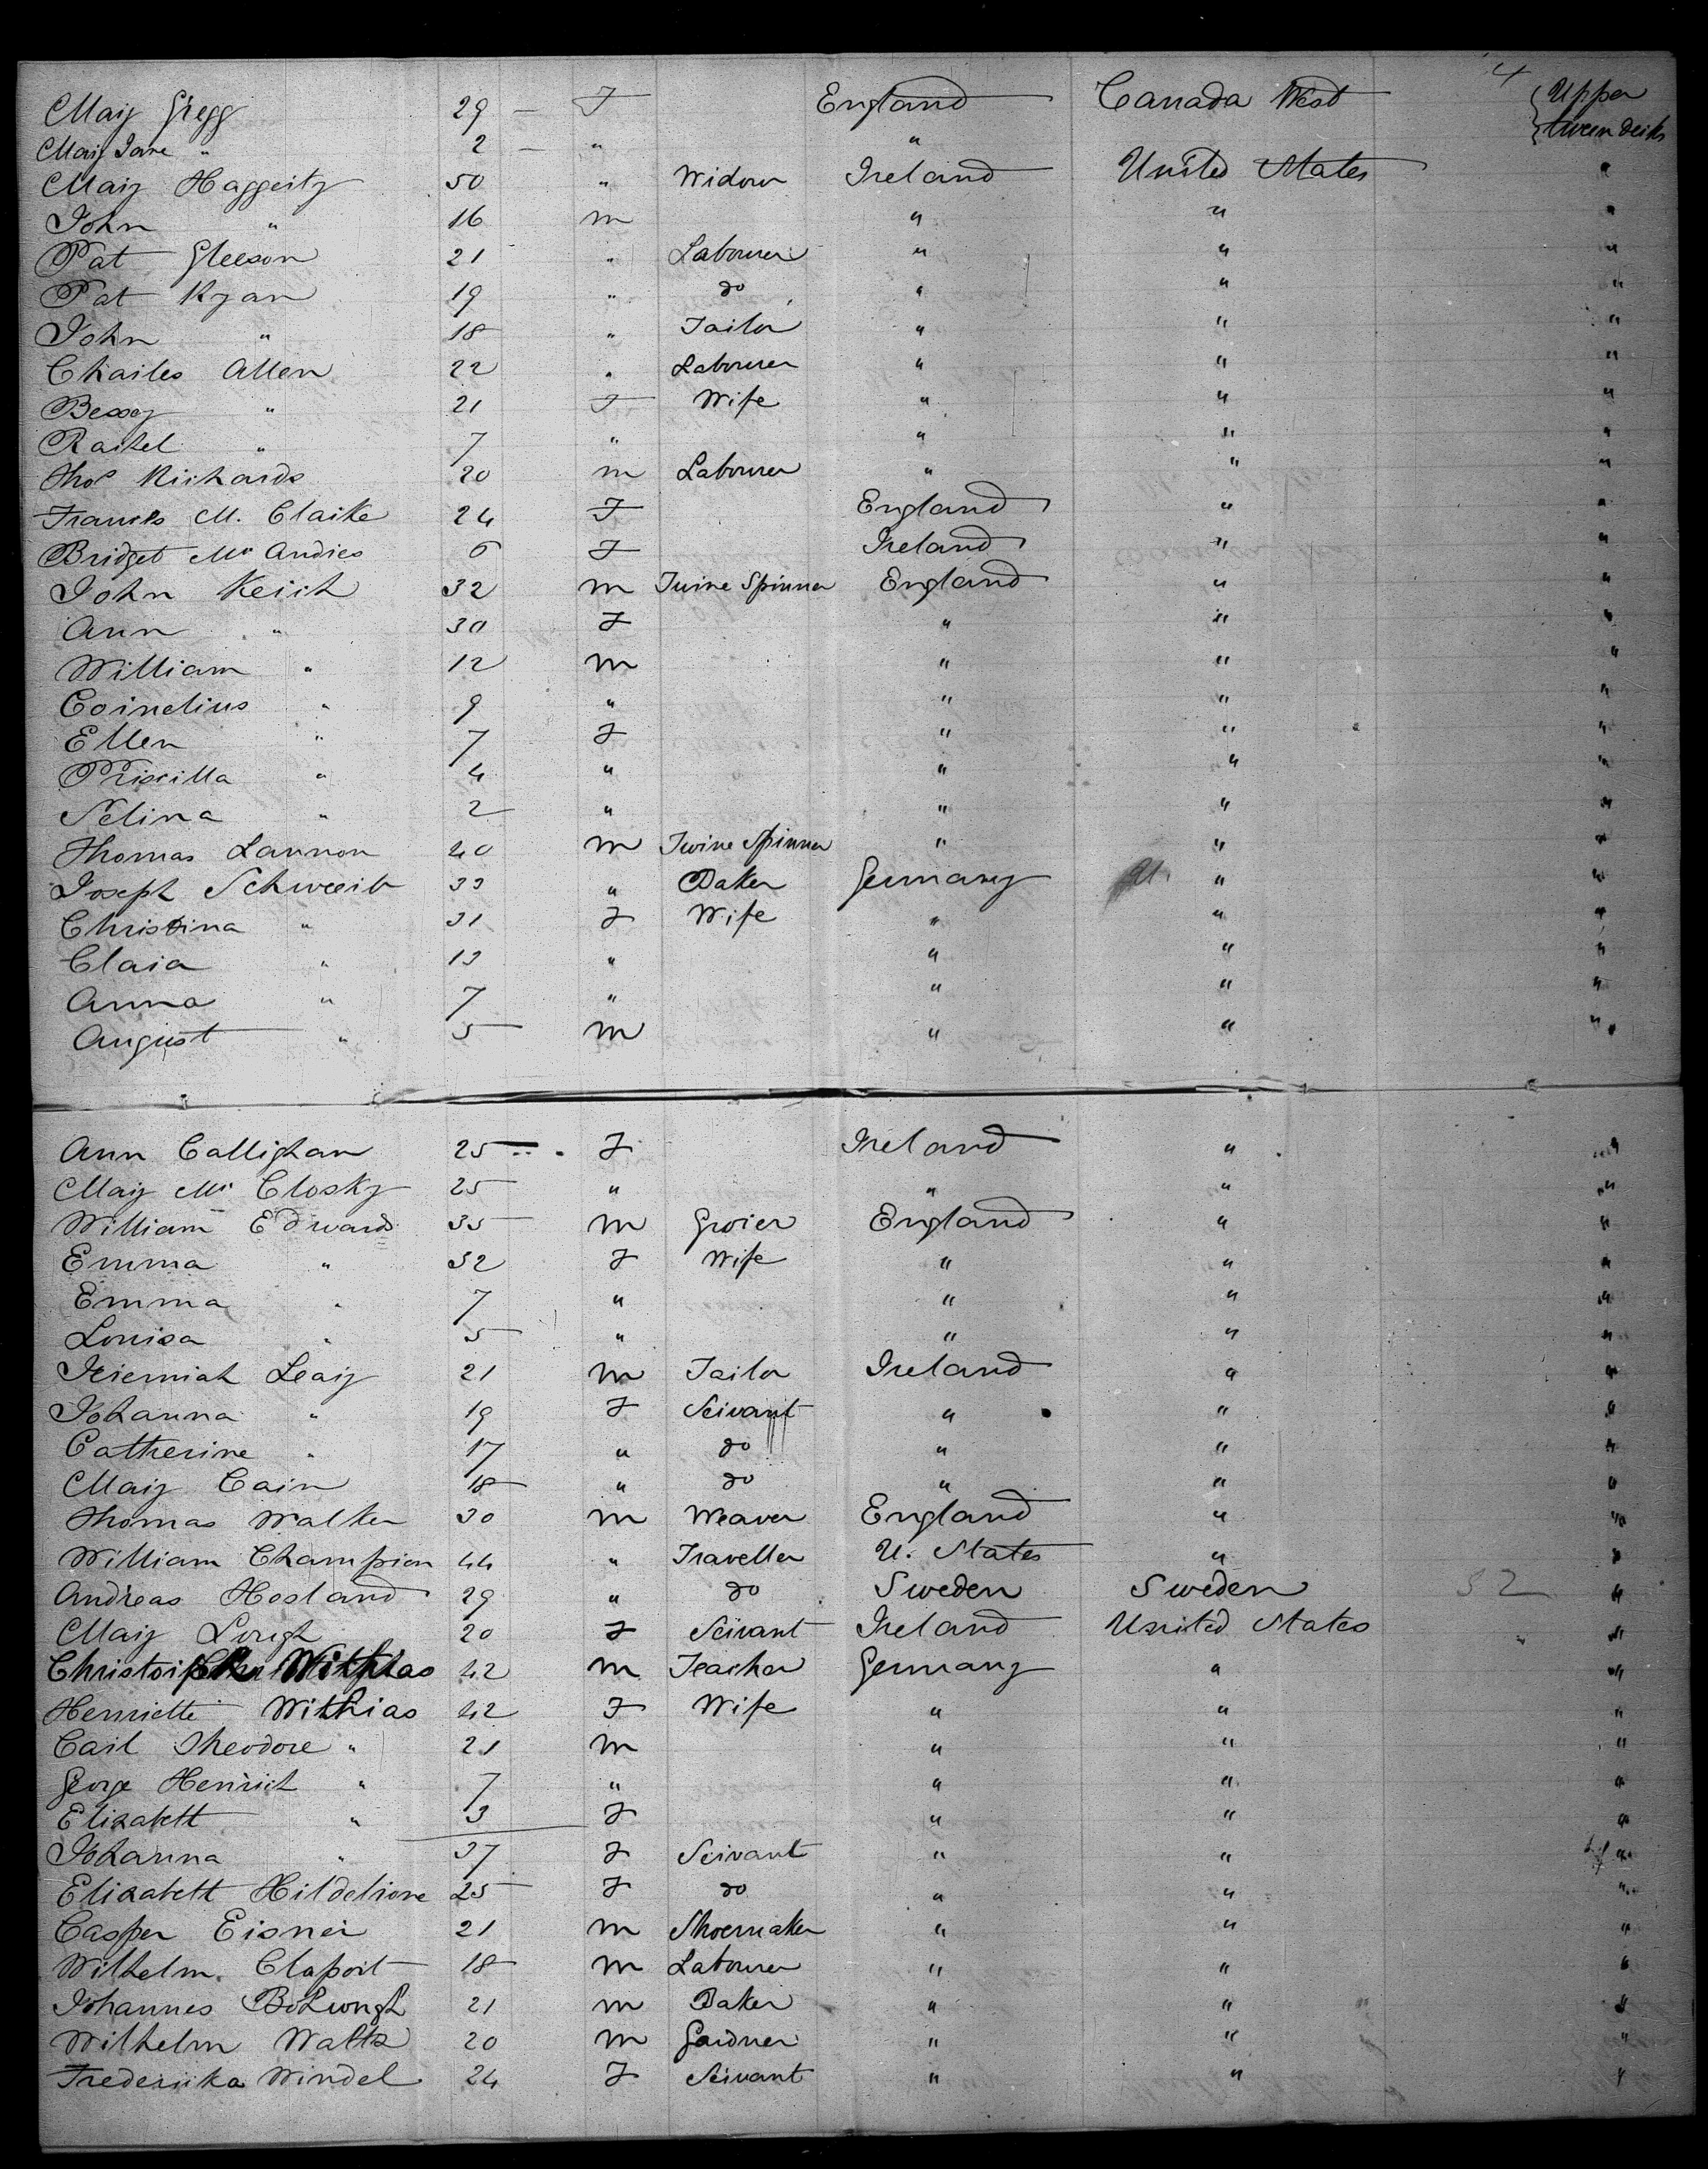 4
Mary Gregg 29 — F England Canada West { Upper
Mary Jane " 2 — " " { tween decks
Mary Haggerty 50 " Widow Ireland United States "
John " 16 m " " "
Pat Gleeson 21 " Labourer " " "
Pat Ryan 19 " do " " "
John " 18 " Tailor " " "
Charles Allen 22 " Labourer " " "
Bessy " 21 F Wife " " "
Rachel " 7 " " " "
Thos Richards 20 m Labourer " " "
Francis M. Clarke 24 F England " "
Bridget Mc Andres 6 F Ireland " "
John Keich 32 m Twine Spinner England " "
Ann " 30 F " " "
William " 12 m " " "
Cornelius " 9 " " " "
Ellen " 7 F " " "
Priscilla " 4 " " " "
Selina " 2 " " " "
Thomas Lannon 40 m Twine Spinner " " "
Joseph Schweeib 33 " Baker Germany " "
Christina " 31 F Wife " " "
Clara " 13 " " " "
Anna " 7 " " " "
August " 5 m " " "
Ann Callighan 25 F Ireland " "
Mary Mc Closky 25 " " " "
William Edwards 35 m Grocer England " "
Emma " 32 F Wife " " "
Emma " 7 " " " "
Louisa " 5 " " " "
Jeremiah Leary 21 m Tailor Ireland " "
Johanna " 19 F Servant " " "
Catherine " 17 " do " " "
Mary Cain 18 " do " " "
Thomas Walker 30 m Weaver England " "
William Champion 44 " Traveller U. States " "
Andreas Hosland 29 " do Sweden Sweden 52 "
Mary Lough 20 F Servant Ireland United States "
42 m Teacher Germany " "
Henriette Withias 42 F Wife " " "
Carl Theodore " 21 m " " "
George Henrich " 7 " " " "
Elizabett " 3 F " " "
Johanna " 37 F Servant " " "
Elizabett Hildelione 25 F do " " "
Casper Eisner 21 m Shoemaker " " "
Wilhelm. Claport 18 m Labourer " " "
Johannes 21 m Baker " " "
Wilhelm Waltz 20 m Gardner " " "
Frederika Windel 24 F Servant " " "